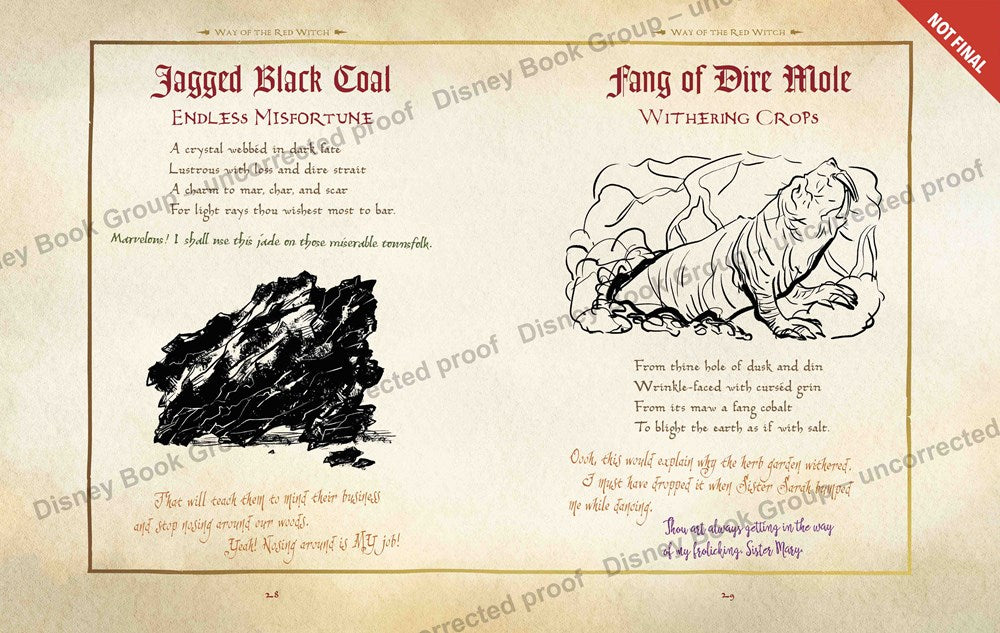 NOT FINAL
WAY OF THE RED WITCH
Jagged Black Coal
ENDLESS MISFORTUNE
A crystal webbéd in dark fate
Lustrous with loss and dire strait
A charm to mar, char, and scar
For light rays thou wishest most to bar.
Marvelous! I shall use this jade on those miserable townsfolk.
That will teach them to mind their business
and stop nosing around our woods.
Yeah! Nosing around is MY job!
28
WAY OF THE RED WITCH
Fang of Dire Mole
WITHERING CROPS
From thine hole of dusk and din
Wrinkle-faced with curséd grin
From its maw a fang cobalt
To blight the earth as if with salt.
Oooh, this would explain why the herb garden withered.
I must have dropped it when Sister Sarah bumped
me while dancing.
Thou art always getting in the way
of my frolicking, Sister Mary.
29
Disney Book Group – uncorrected proof Disney Book Group –
Disney Book Group – uncorrected proof
Disney Book Group – uncorrected proof Disney Book Group – uncorrected
uncorrected proof Disney Book Group – uncorrected proof